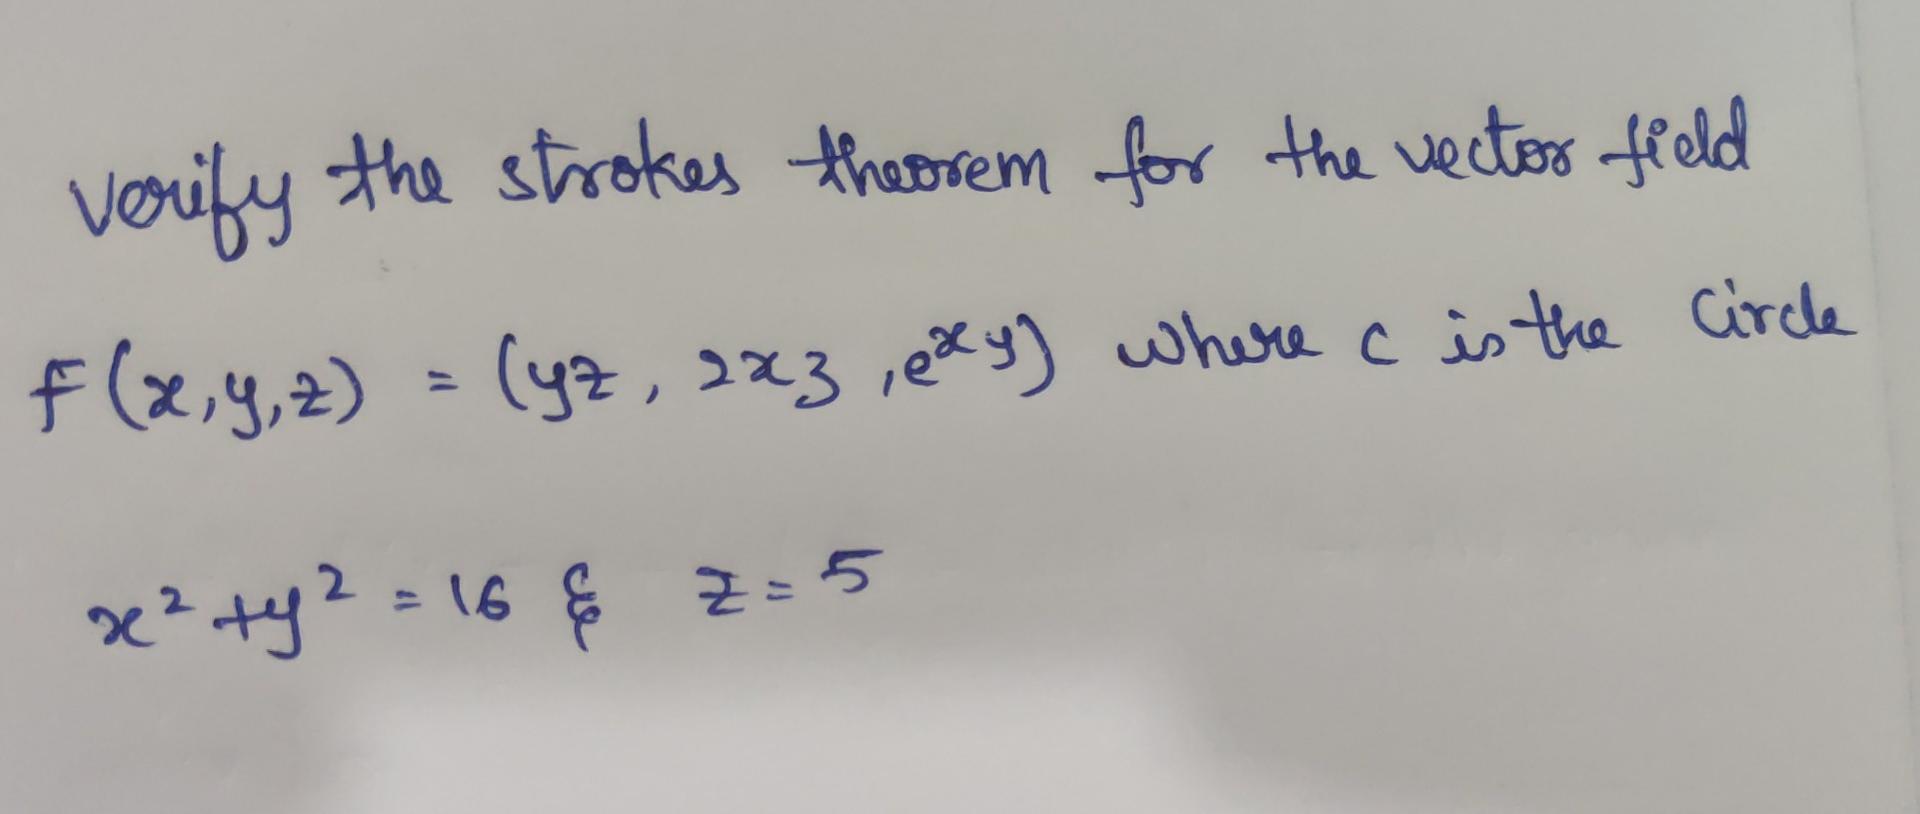 verify the strokes theorem for the vector field
F(x,y,z) = (yz, 2xz, e^{xy}) where c is the circle
x² + y² = 16 & z = 5